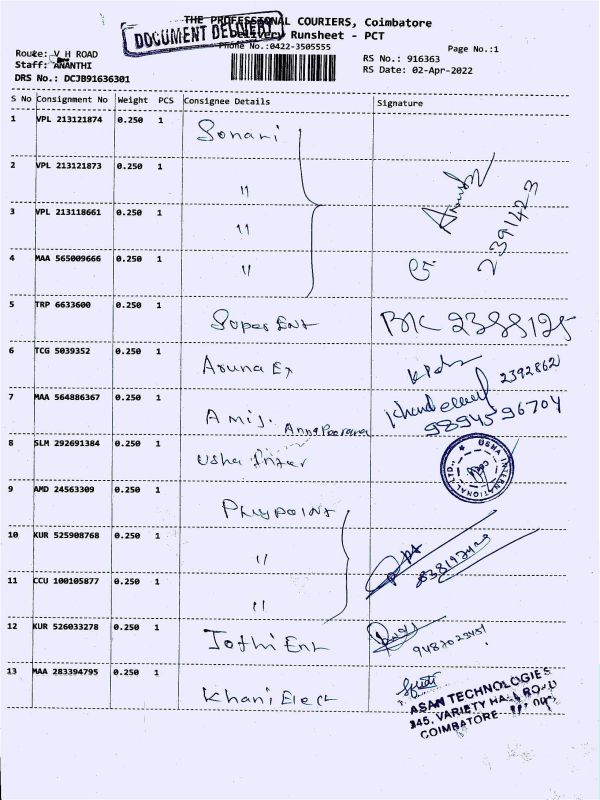 THE PROFESSIONAL COURIERS, Coimbatore
DOCUMENT DELIVERY
Delivery Runsheet - PCT
Phone No.:0422-3505555
Page No.:1
Route: V H ROAD
RS No.: 916363
Staff: ANANTHI
RS Date: 02-Apr-2022
DRS No.: DCJB91636301
S No Consignment No Weight PCS Consignee Details Signature
1 VPL 213121874 0.250 1 Sonari
2 VPL 213121873 0.250 1 "
3 VPL 213118661 0.250 1 " 2391423
4 MAA 565009666 0.250 1 "
5 TRP 6633600 0.250 1 Super Ent 2388125
6 TCG 5039352 0.250 1 Aruna Ex 2392862
7 MAA 564886367 0.250 1 Amij. Annapoorana 9894596704
8 SLM 292691384 0.250 1 Usha Inter USHA INTERNATIONAL LTD.
9 AMD 24563309 0.250 1 Playpoint
10 KUR 525908768 0.250 1 "
11 CCU 100105877 0.250 1 "
12 KUR 526033278 0.250 1 Jothi Ent
13 MAA 283394795 0.250 1 Khani Elect
ASAN TECHNOLOGIES
345, VARIETY HALL ROAD
COIMBATORE